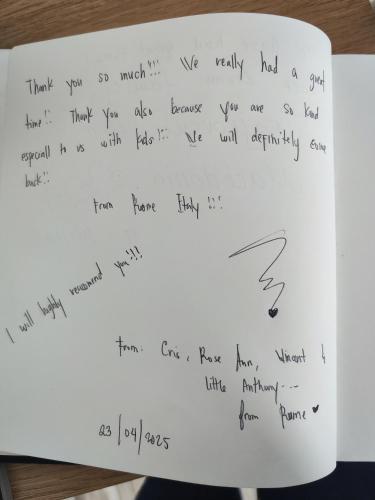 Thank you so much!!! We really had a great
time!! Thank you also because you are so kind
especiall to us with kids!!! We will definitely come
back!!
From Rome Italy!!!
I will highly recommend you!!!
From: Cris, Rose Ann, Vincent &
little Anthony...
from Rome
23/04/2025